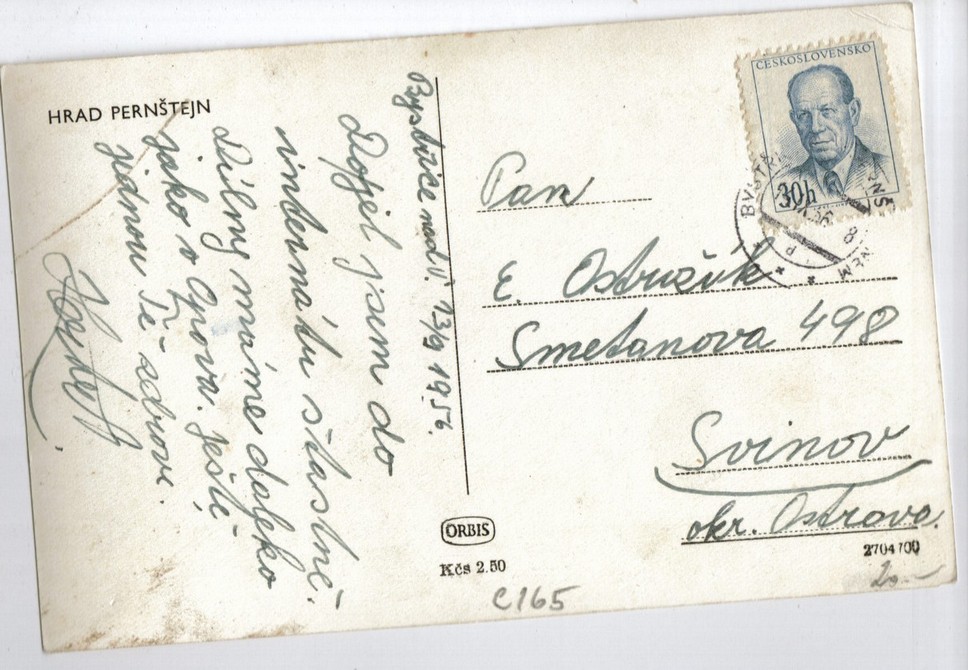 HRAD PERNŠTEJN
Bystřice nad P. 13/9 1956.
Dojel jsem do
internátu šťastně.
Dílny máme daleko
jako v Opova. Ještě
jednou Tě zdrove.
ČESKOSLOVENSKO
30h
Pan
E. Ostružík
Smetanova 498
Svinov
okr. Ostrava.
ORBIS
Kčs 2.50
2704700
C165
20.-